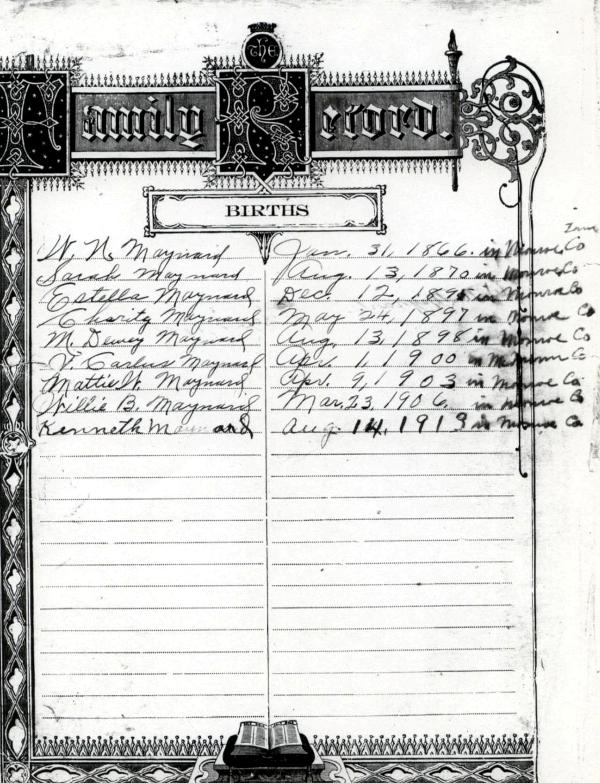 the
Family Record.
BIRTHS
W. N. Maynard Jan. 31, 1866. in Monroe Co
Sarah Maynard Aug. 13, 1870 in Monroe Co
Estella Maynard Dec. 12, 1895 in Monroe Co
Charity Maynard May 24, 1897 in Monroe Co
M. Dewey Maynard Aug. 13, 1898 in Monroe Co
Carlus Maynard Apr. 1, 1900 in Monroe Co
Mattie W. Maynard Apr. 9, 1903 in Monroe Co
Willie B. Maynard Mar. 23, 1906. in Monroe Co
Kenneth Maynard Aug. 14, 1913 in Monroe Co